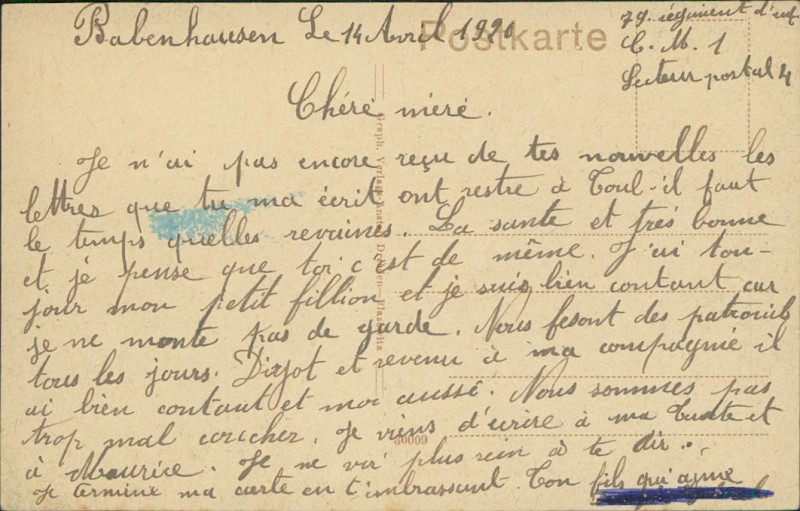 Babenhausen Le 14 Avril 1920
Postkarte
79. régiment d'inf
C. M. 1
Secteur postal 4
Chéré méré.
Je n'ai pas encore reçu de tes nouvelles les
lettres que tu ma écrit ont restre à Toul-il faut
le temps quelles revaines. La sante et trés bonne
et je pense que toi c'est de même. J'ai tou-
jour mon petit fillion et je suis bien contant car
je ne monte pas de garde. Nous fesont des patrouills
tous les jours. Dirjot et revenu à ma compagnie il
ai bien contant et moi aussé. Nous sommes pas
trop mal coucher. Je viens d'écrire à ma Tante et
à Maurice. Je ne voi plus rein à te dir..
Je termine ma carte en t'embrassant. Ton fils qui aime
30009